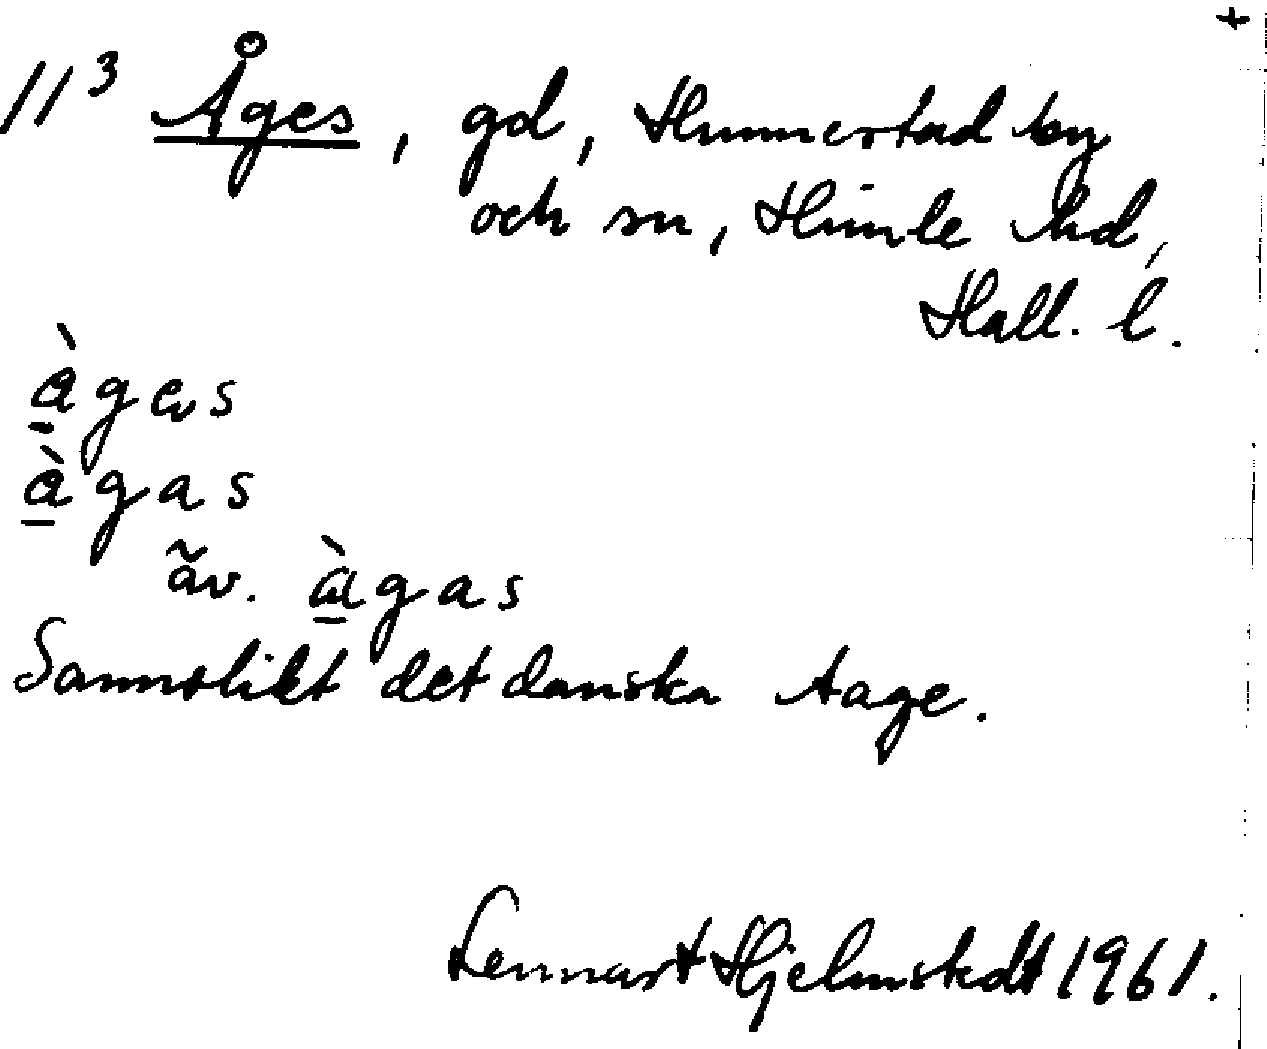 +
11³ Åges, gd, Hunnestad by
och sn, Himle hd,
Hall. l.
àgas
àgas
äv. àgas
Sannolikt det danska Aage.
Lennart Hjelmstedt 1961.